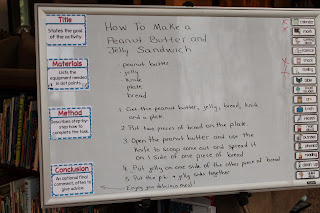 Title
States the goal
of the activity.
Materials
Lists the
equipment needed
in dot points.
Method
Describes step-by-
step how to
complete the task.
Conclusion
An optional final
comment, often to
give advice.
How To Make a
Peanut Butter and
Jelly Sandwich
. peanut butter
. jelly
. knife
. plate
. bread
1. Get the peanut butter, jelly, bread, knife
and a plate.
2. Put two pieces of bread on the plate.
3. Open the peanut butter and use the
knife to scoop some out and spread it
on 1 side of one piece of bread
4. Put jelly on one side of the other piece of bread
5. Put the pb + jelly sides together
Enjoy your delicious meal!
calendar
math
science
snack
writing
art
lunch
recess
phonics
reading